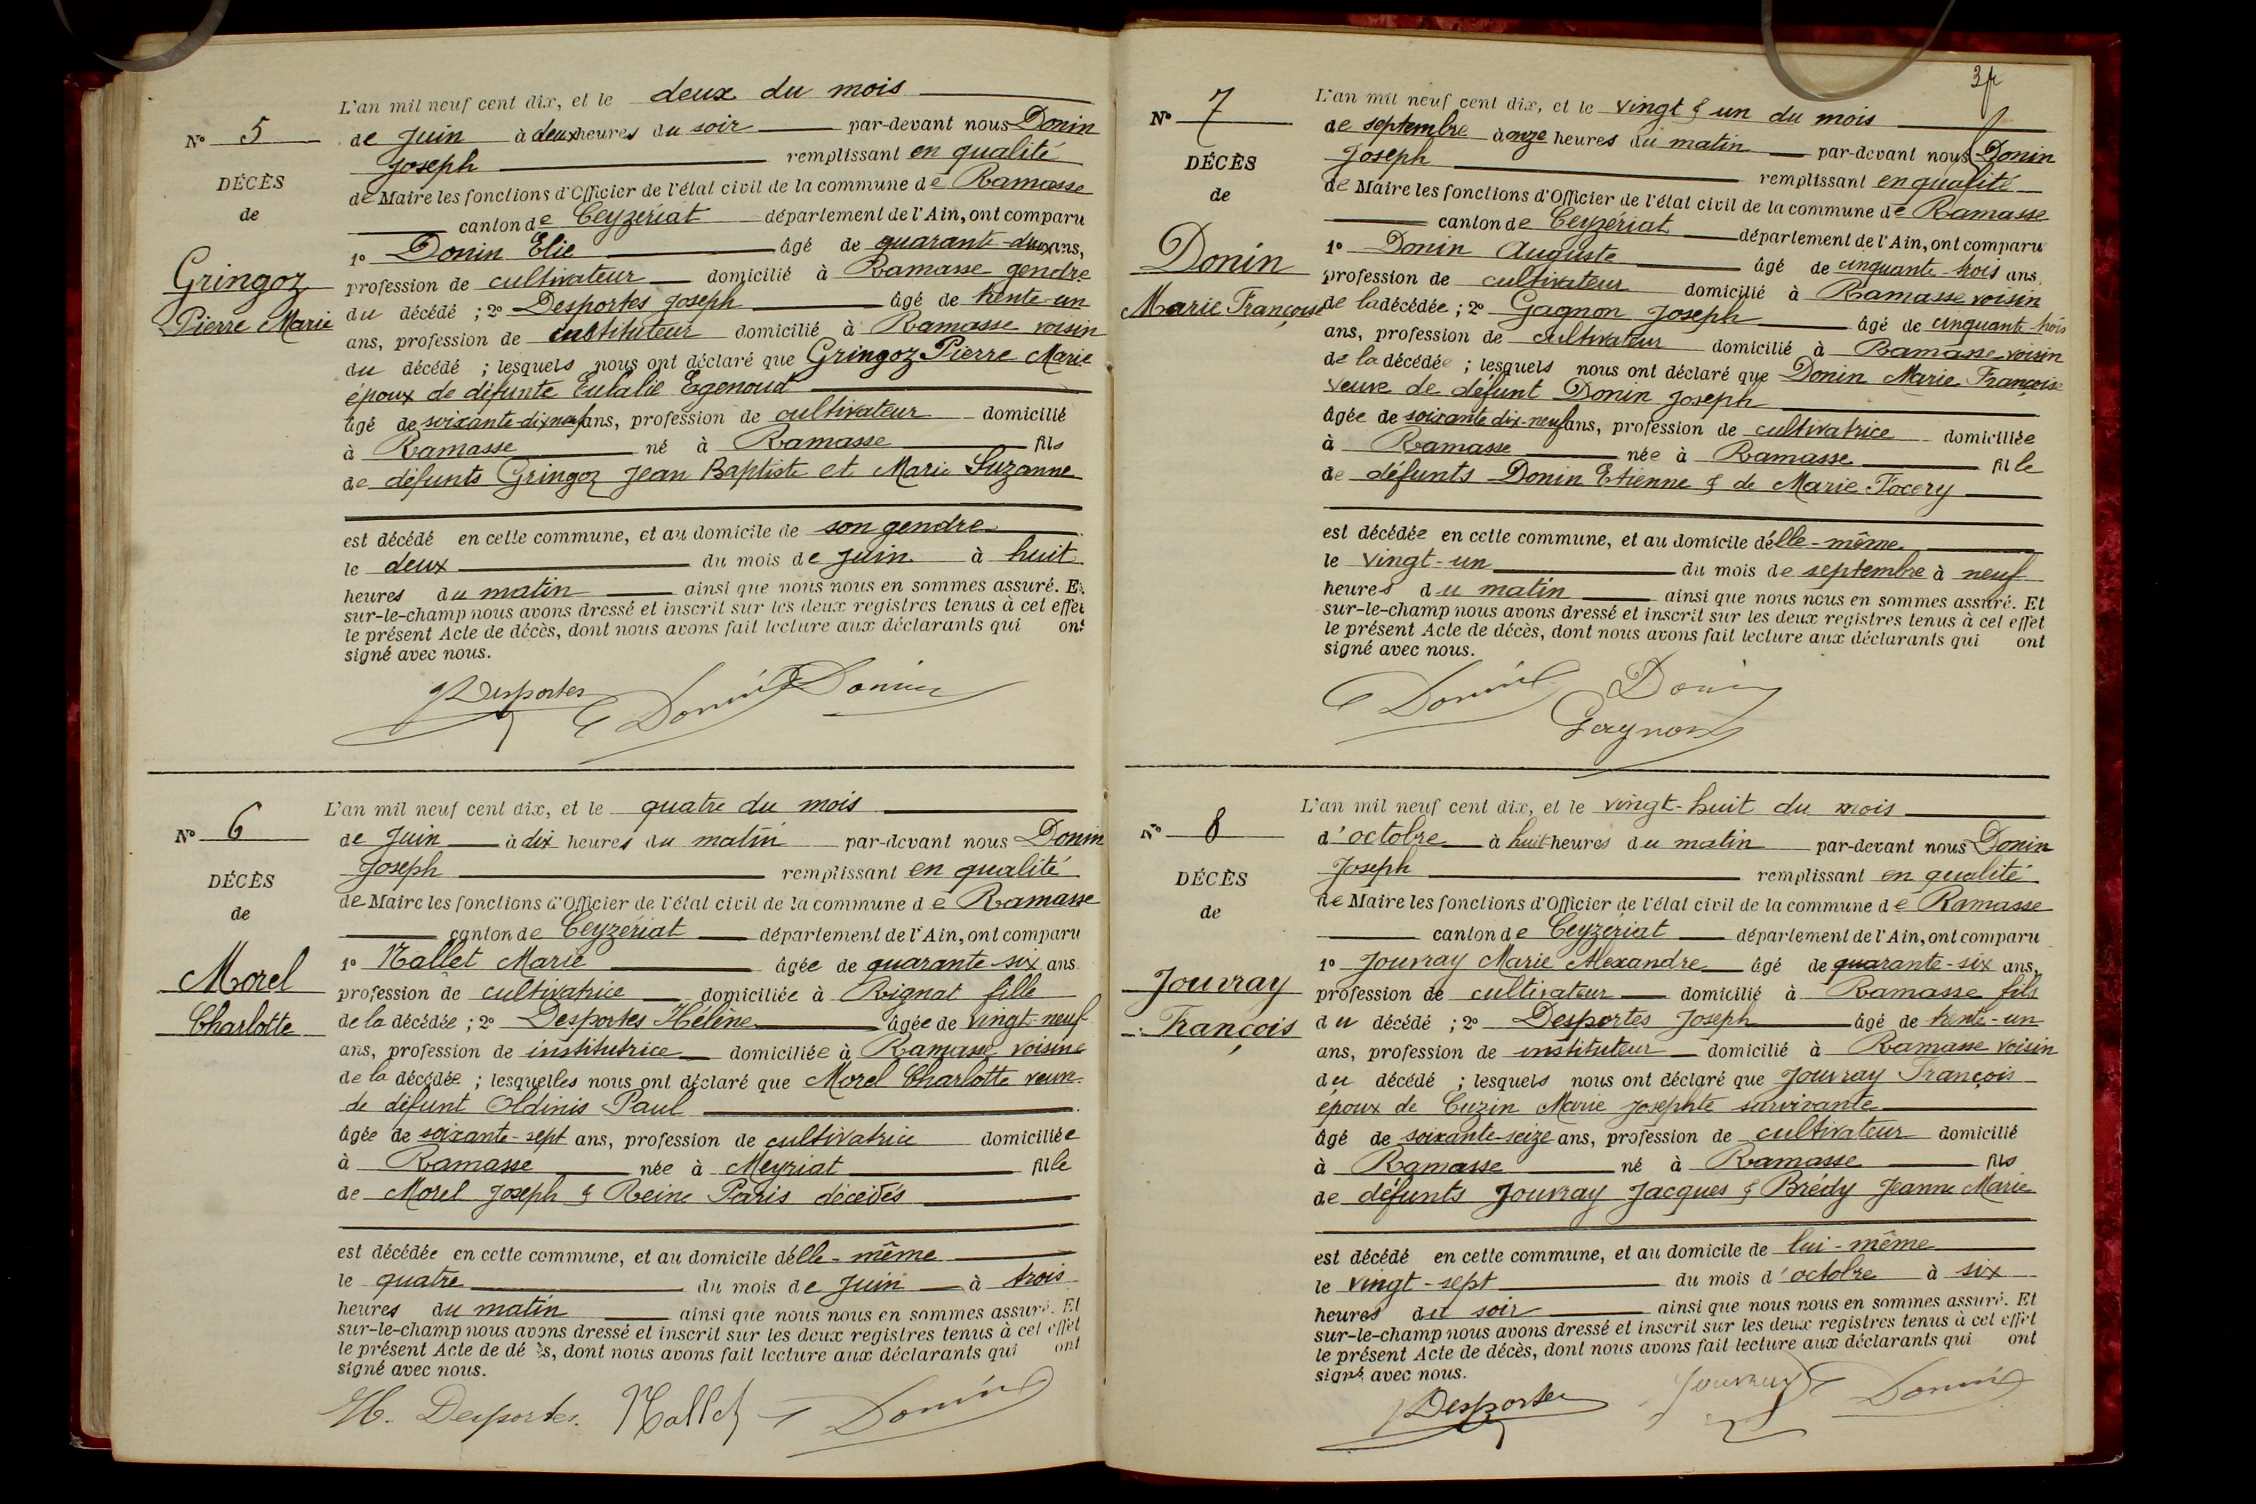 L'an mil neuf cent dix, et le deux du mois
N° 5
de Juin à deux heures du soir par-devant nous Donin
Joseph remplissant en qualité
DÉCÈS
de Maire les fonctions d'Officier de l'état civil de la commune de Ramasse
de
canton de Ceyzériat département de l'Ain, ont comparu
1° Donin Elie âgé de quarante-deux ans,
Gringoz
profession de cultivateur domicilié à Ramasse gendre
du décédé ; 2° Desportes Joseph âgé de trente-un
Pierre Marie
ans, profession de instituteur domicilié à Ramasse voisin
du décédé ; lesquels nous ont déclaré que Gringoz Pierre Marie
époux de défunte Eulalie Egenoud
âgé de soixante-dix neuf ans, profession de cultivateur domicilié
à Ramasse né à Ramasse fils
de défunts Gringoz Jean Baptiste et Marie Suzanne
est décédé en cette commune, et au domicile de son gendre
le deux du mois de Juin à huit
heures du matin ainsi que nous nous en sommes assuré. Et
sur-le-champ nous avons dressé et inscrit sur les deux registres tenus à cet effet
le présent Acte de décès, dont nous avons fait lecture aux déclarants qui ont
signé avec nous.
J Desportes E Donin Donin
L'an mil neuf cent dix, et le quatre du mois
N° 6
de Juin à dix heures du matin par-devant nous Donin
Joseph remplissant en qualité
DÉCÈS
de Maire les fonctions d'Officier de l'état civil de la commune de Ramasse
de
canton de Ceyzériat département de l'Ain, ont comparu
1° Nallet Marie âgée de quarante-six ans
Morel
profession de cultivatrice domiciliée à Rignat fille
de la décédée ; 2° Desportes Hélène âgée de vingt-neuf
Charlotte
ans, profession de institutrice domiciliée à Ramasse voisine
de la décédée ; lesquelles nous ont déclaré que Morel Charlotte veuve
de défunt Oldinis Paul
âgée de soixante-sept ans, profession de cultivatrice domiciliée
à Ramasse née à Meyriat fille
de Morel Joseph & Reine Paris décédés
est décédée en cette commune, et au domicile délle-même
le quatre du mois de Juin à trois
heures du matin ainsi que nous nous en sommes assuré. Et
sur-le-champ nous avons dressé et inscrit sur les deux registres tenus à cet effet
le présent Acte de décès, dont nous avons fait lecture aux déclarants qui ont
signé avec nous.
H. Desportes. Nallet Donin
L'an mil neuf cent dix, et le vingt & un du mois
N° 7
de septembre à onze heures du matin par-devant nous Donin
Joseph remplissant en qualité
DÉCÈS
de Maire les fonctions d'Officier de l'état civil de la commune de Ramasse
de
canton de Ceyzériat département de l'Ain, ont comparu
1° Donin Auguste âgé de cinquante-trois ans,
Donin
profession de cultivateur domicilié à Ramasse voisin
Marie Françoise
de la décédée ; 2° Gagnon Joseph âgé de cinquante trois
ans, profession de cultivateur domicilié à Ramasse voisin
de la décédée ; lesquels nous ont déclaré que Donin Marie Françoise
veuve de défunt Donin Joseph
âgée de soixante dix-neuf ans, profession de cultivatrice domiciliée
à Ramasse née à Ramasse fille
de défunts Donin Etienne & de Marie Tocery
est décédée en cette commune, et au domicile délle-même
le vingt-un du mois de septembre à neuf
heures du matin ainsi que nous nous en sommes assuré. Et
sur-le-champ nous avons dressé et inscrit sur les deux registres tenus à cet effet
le présent Acte de décès, dont nous avons fait lecture aux déclarants qui ont
signé avec nous.
Donin Donin
Gagnon
L'an mil neuf cent dix, et le vingt-huit du mois
N° 8
d'octobre à huit heures du matin par-devant nous Donin
Joseph remplissant en qualité
DÉCÈS
de Maire les fonctions d'Officier de l'état civil de la commune de Ramasse
de
canton de Ceyzériat département de l'Ain, ont comparu
1° Jouvray Marie Alexandre âgé de quarante-six ans,
Jouvray
profession de cultivateur domicilié à Ramasse fils
François
du décédé ; 2° Desportes Joseph âgé de trente-un
ans, profession de instituteur domicilié à Ramasse voisin
du décédé ; lesquels nous ont déclaré que Jouvray François
époux de Cuzin Marie Josephte survivante
âgé de soixante-seize ans, profession de cultivateur domicilié
à Ramasse né à Ramasse fils
de défunts Jouvray Jacques & Brédy Jeanne Marie
est décédé en cette commune, et au domicile de lui-même
le vingt-sept du mois d'octobre à six
heures du soir ainsi que nous nous en sommes assuré. Et
sur-le-champ nous avons dressé et inscrit sur les deux registres tenus à cet effet
le présent Acte de décès, dont nous avons fait lecture aux déclarants qui ont
signé avec nous.
J Desportes Jouvray Donin